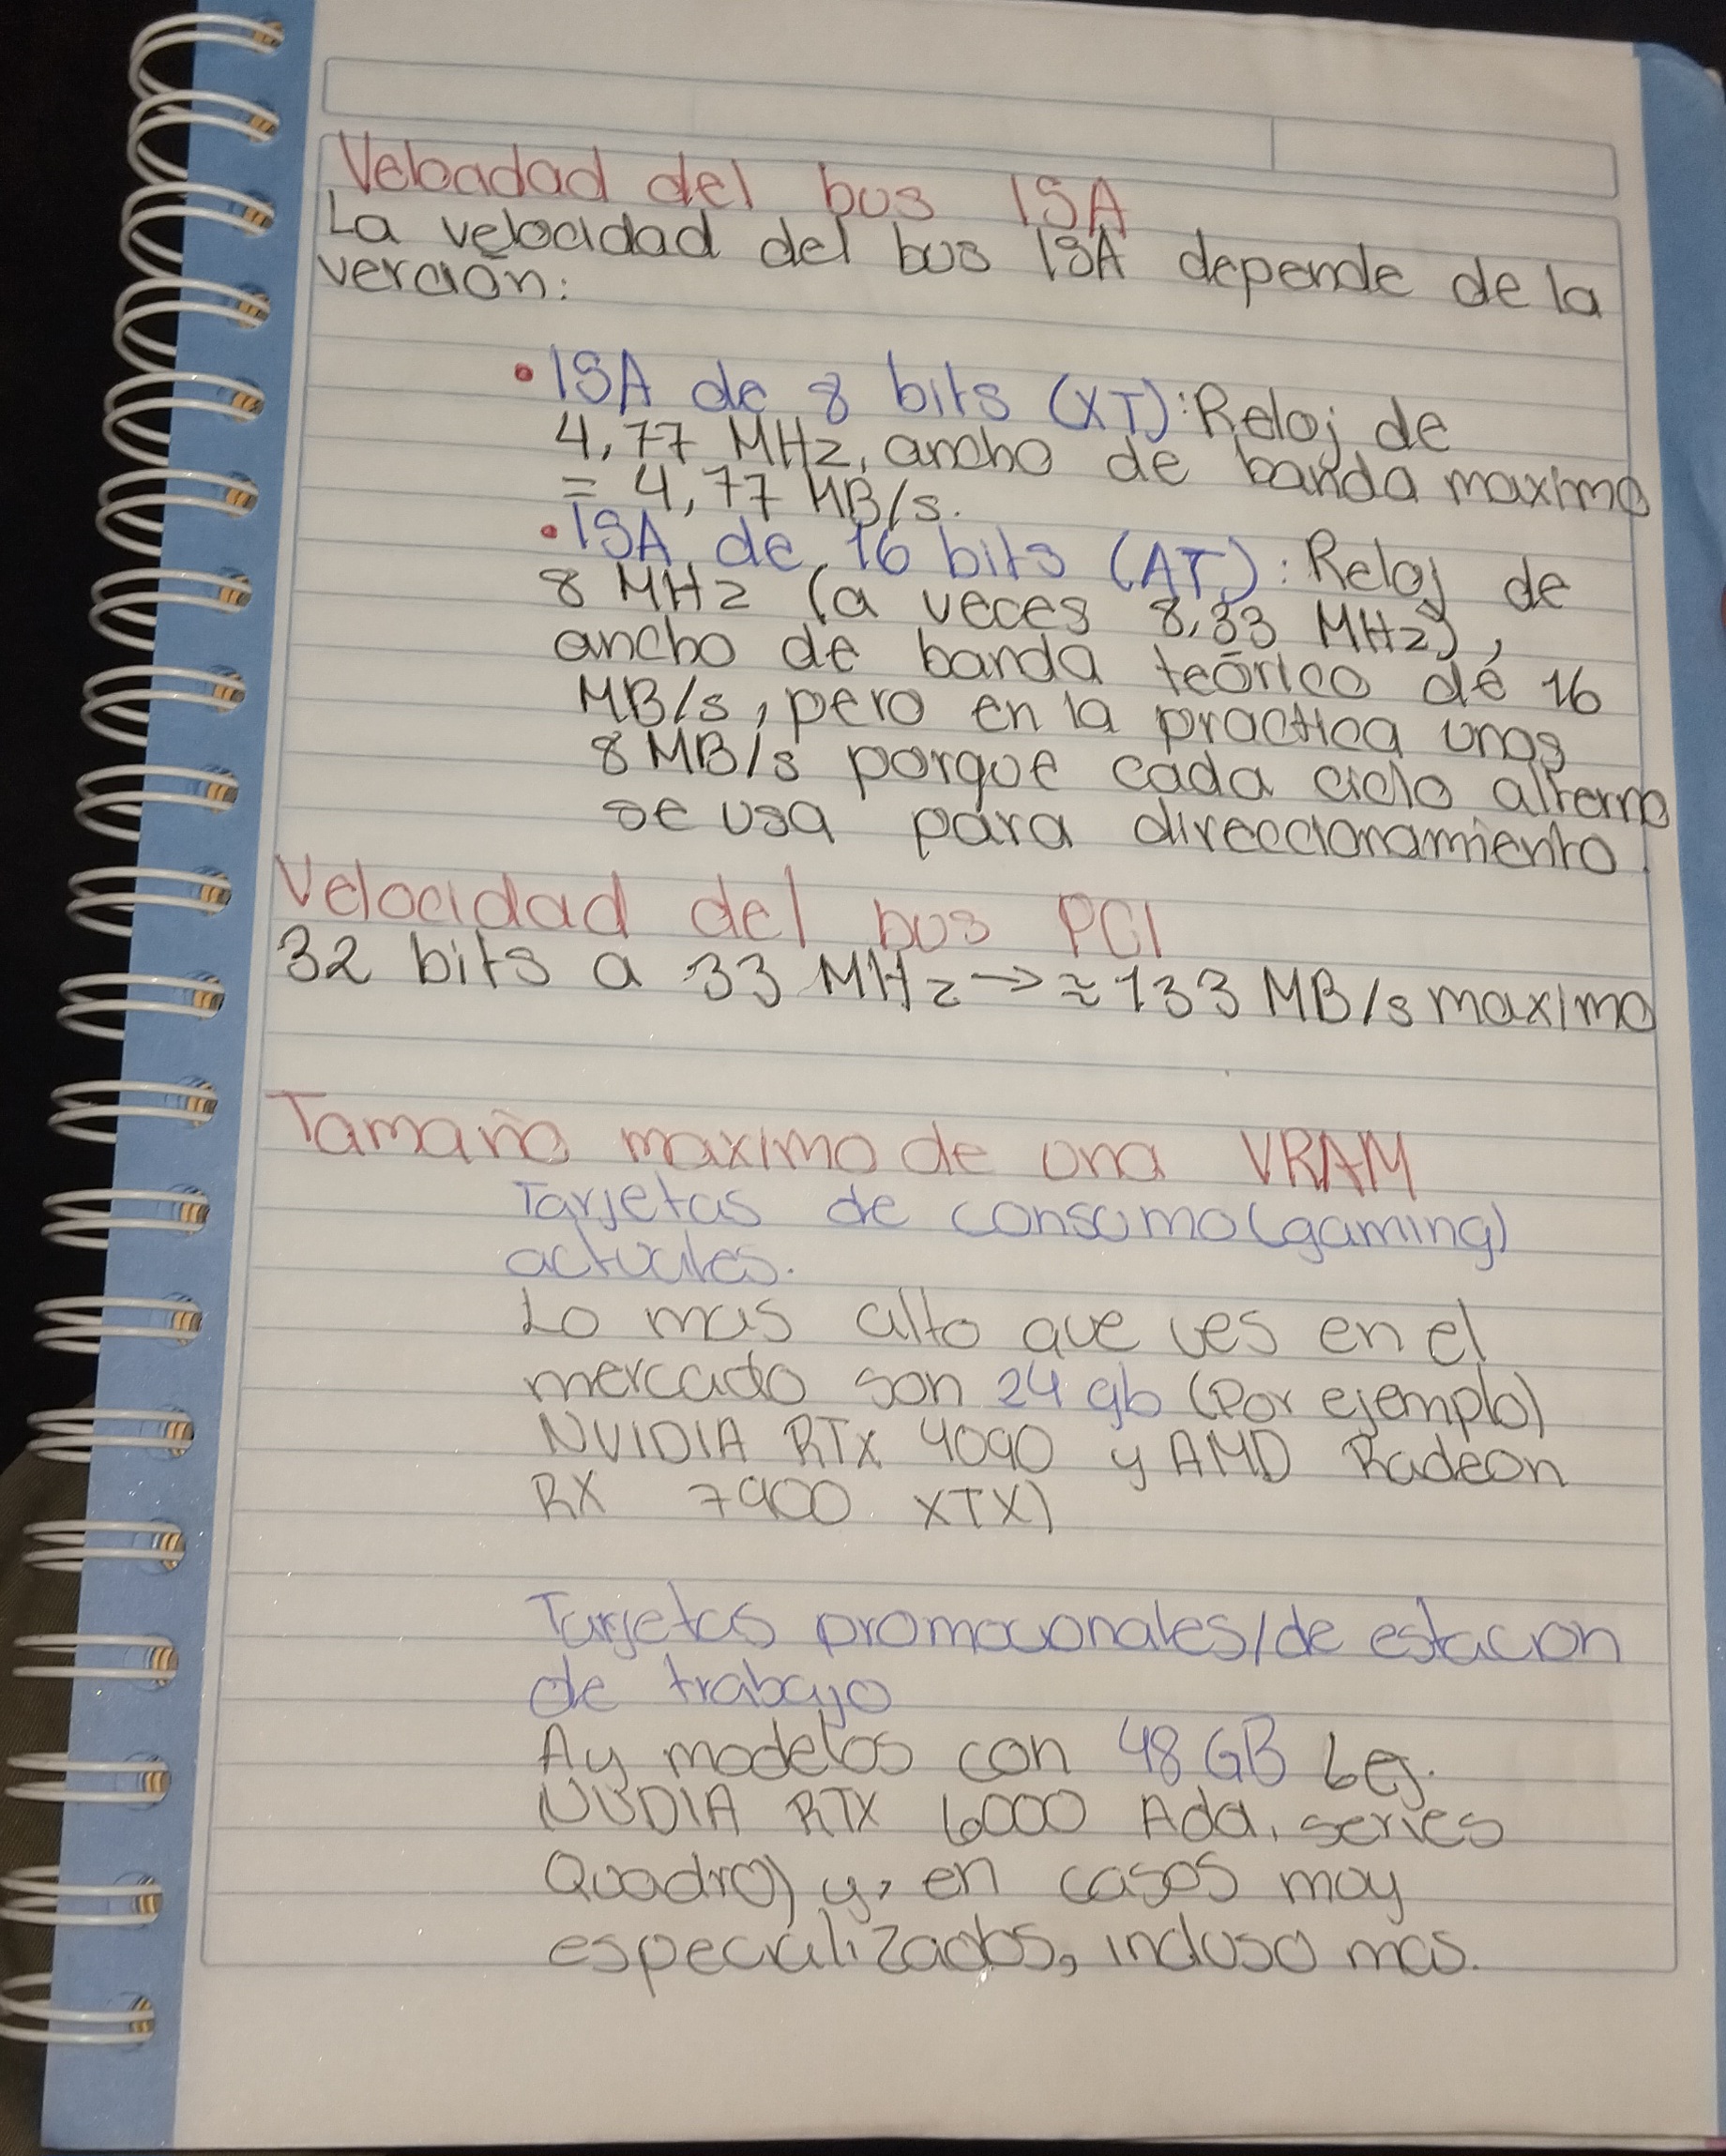 Velocidad del bus ISA
La velocidad del bus ISA depende de la
verción:
• ISA de 8 bits (XT): Reloj de
4,77 MHz, ancho de banda maximo
= 4,77 MB/s.
• ISA de 16 bits (AT): Reloj de
8 MHz (a veces 8,33 MHz),
ancho de banda teórico de 16
MB/s, pero en la practica unos
8 MB/s porque cada ciclo alterno
se usa para direccionamiento.
Velocidad del bus PCI
32 bits a 33 MHz → ≈ 133 MB/s maximo
Tamaño maximo de una VRAM
Tarjetas de consumo (gaming)
actuales.
Lo mas alto que ves en el
mercado son 24 gb (Por ejemplo)
NVIDIA RTX 4090 y AMD Radeon
RX 7900 XTX)
Tarjetas promocionales/de estacion
de trabajo
Ay modelos con 48 GB (ej.
NVDIA RTX 6000 Ada, series
Quadro) y, en casos muy
especializados, incluso mas.